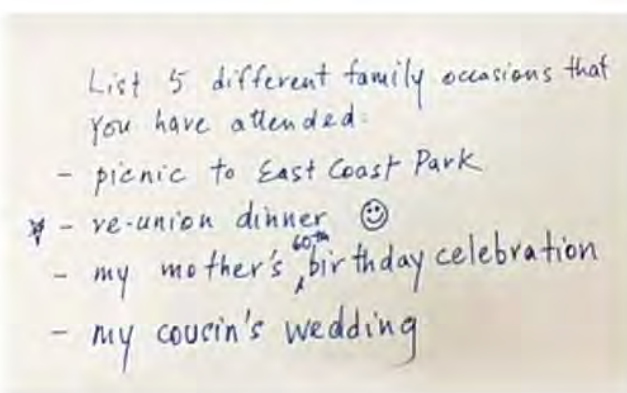 List 5 different family occasions that
you have attended:
- picnic to East Coast Park
* - re-union dinner ☺
- my mother's 60th birthday celebration
- my cousin's wedding